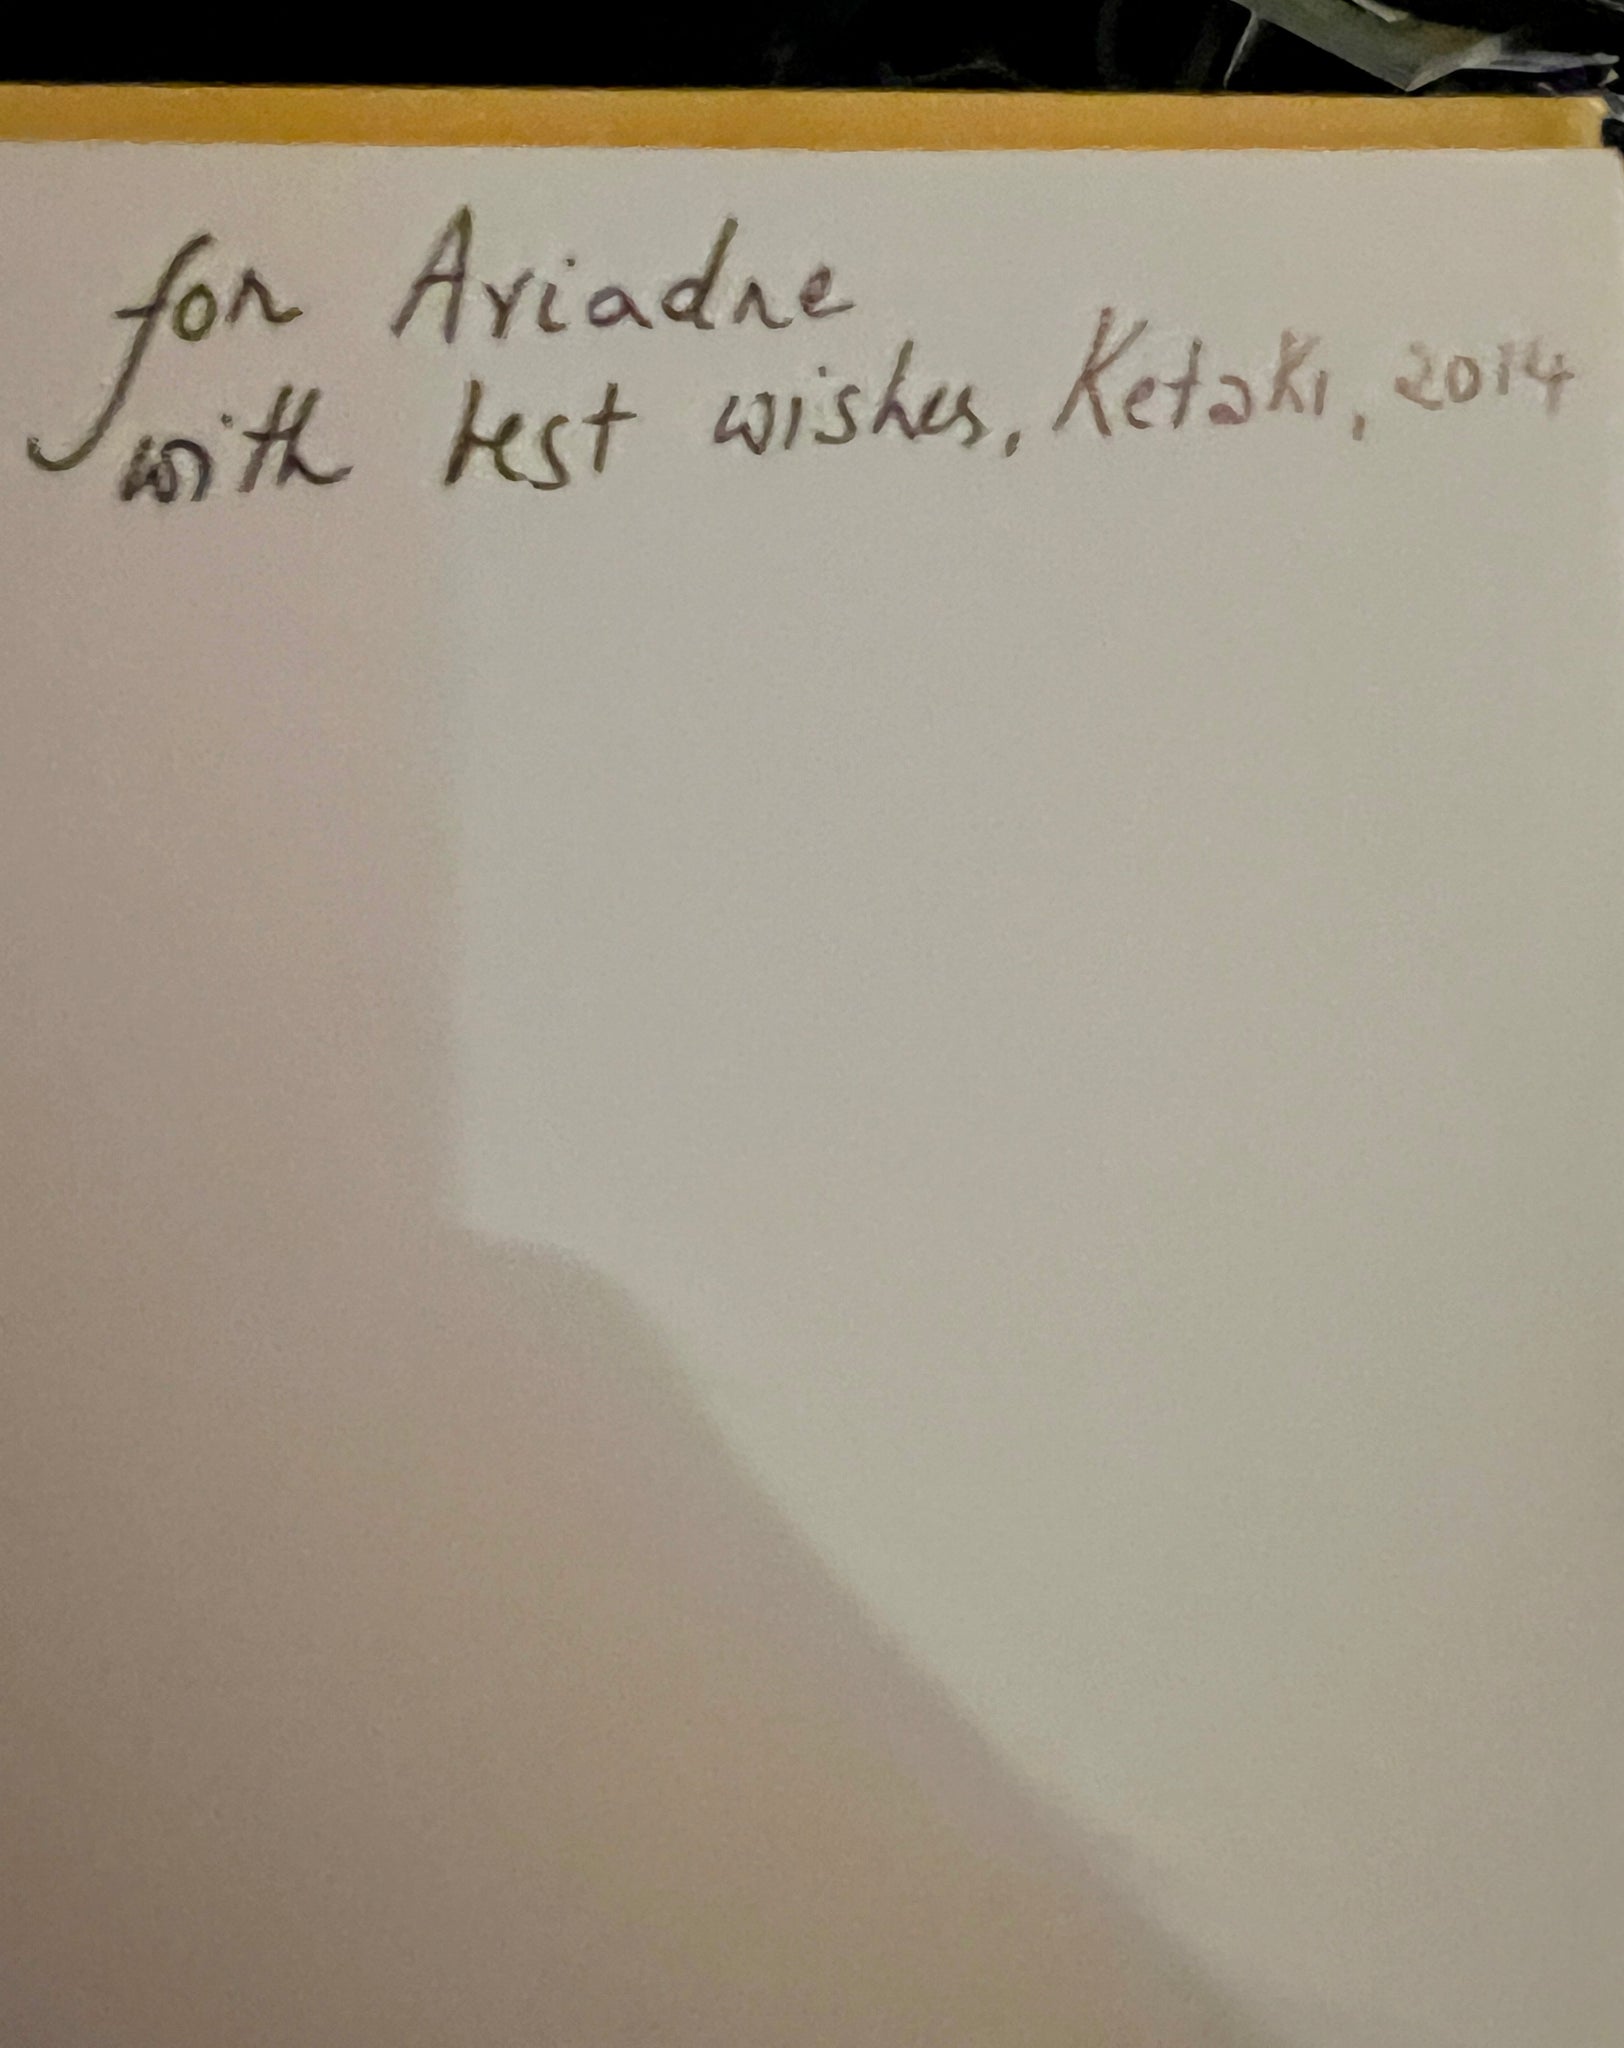 for Ariadne
with best wishes, Ketaki, 2014